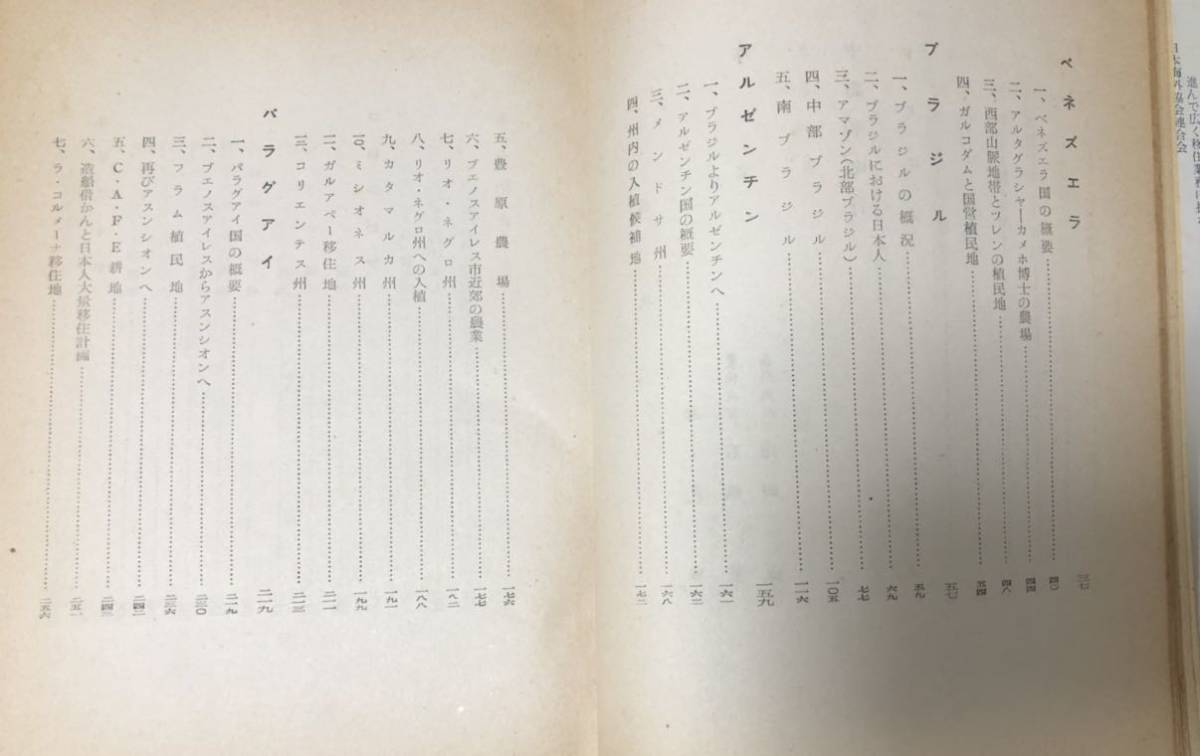 進んで広く移住業務に
日本海外協会連合会
ベネズエラ……三七
一、ベネズエラ国の概要……四〇
二、アルタグラシャーカメホ博士の農場……四四
三、西部山脈地帯とツレンの植民地……四八
四、ガルコダムと国営植民地……五四
ブラジル……五七
一、ブラジルの概況……五九
二、ブラジルにおける日本人……六九
三、アマゾン(北部ブラジル)……七七
四、中部ブラジル……一〇五
五、南ブラジル……一一六
アルゼンチン……一五九
一、ブラジルよりアルゼンチンへ……一六一
二、アルゼンチン国の概要……一六二
三、メンドサ州……一六八
四、州内の入植候補地……一七二
五、豊原農場……一七六
六、ブエノスアイレス市近郊の農業……一七七
七、リオ・ネグロ州……一八二
八、リオ・ネグロ州への入植……一八八
九、カタマルカ州……一九一
一〇、ミシオネス州……一九九
一一、ガルアペー移住地……二一一
一二、コリエンテス州……二一三
パラグアイ……二一九
一、パラグアイ国の概要……二一九
二、ブエノスアイレスからアスンシオンへ……二三〇
三、フラム植民地……二三六
四、再びアスンシオンへ……二四二
五、C・A・F・E耕地……二四三
六、造船借かんと日本人大量移住計画……二五一
七、ラ・コルメーナ移住地……二五六